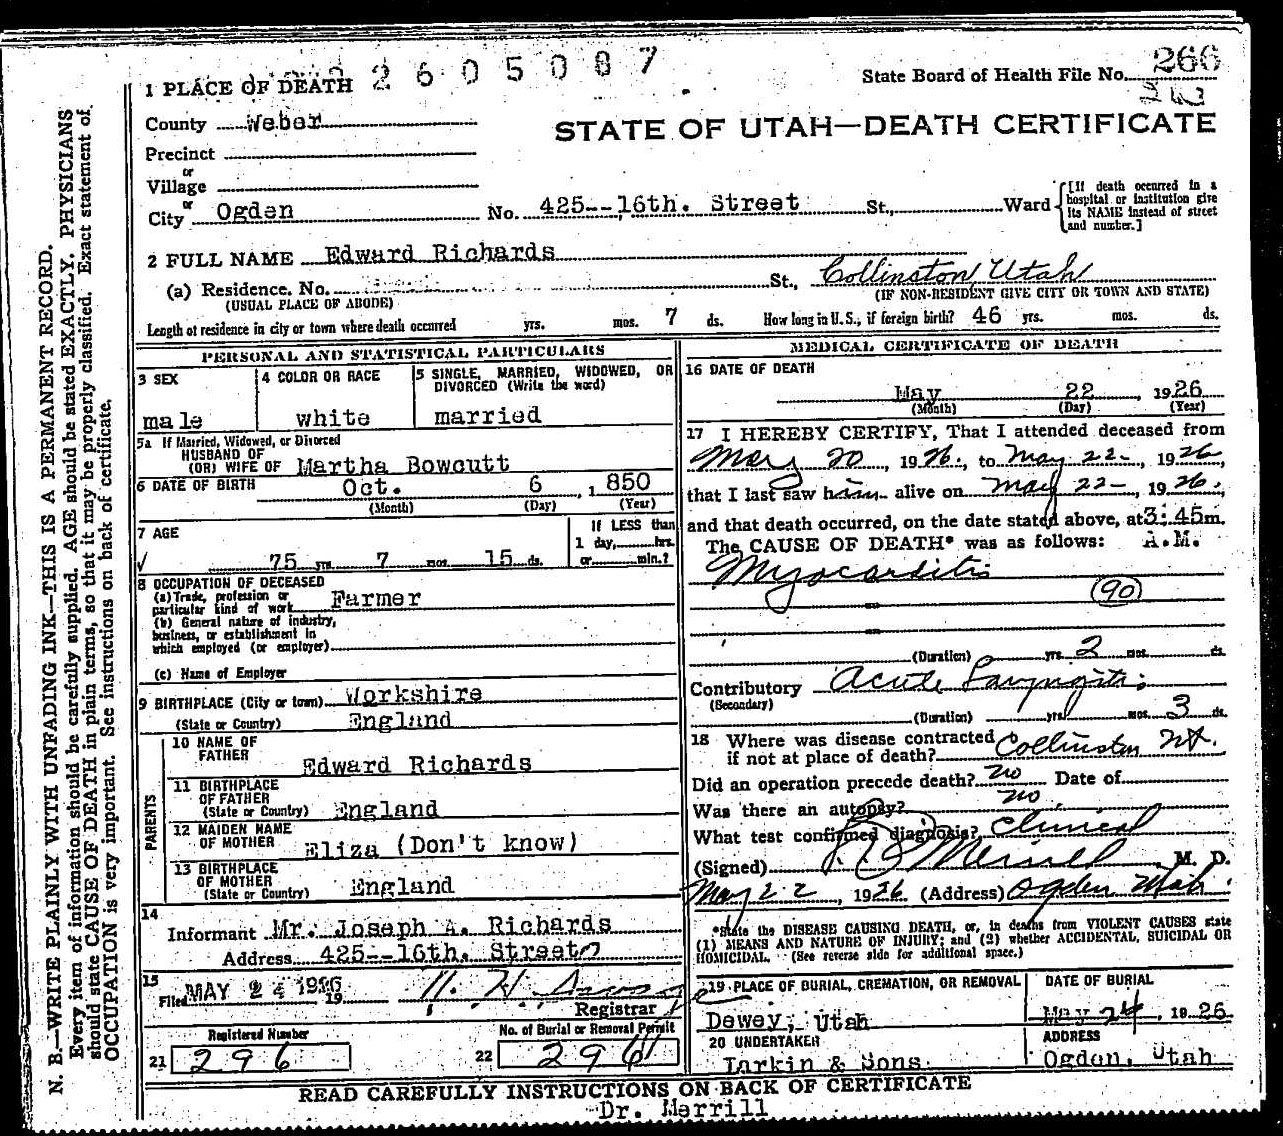 2605087
State Board of Health File No. 266
1 PLACE OF DEATH
County Weber
STATE OF UTAH—DEATH CERTIFICATE
Precinct
or
Village
or
City Ogden No. 425--16th. Street St., Ward
[If death occurred in a hospital or institution give its NAME instead of street and number.]
2 FULL NAME Edward Richards
(a) Residence. No. St., Collinston, Utah
(USUAL PLACE OF ABODE) (IF NON-RESIDENT GIVE CITY OR TOWN AND STATE)
Length of residence in city or town where death occurred yrs. mos. 7 ds. How long in U. S., if foreign birth? 46 yrs. mos. ds.
PERSONAL AND STATISTICAL PARTICULARS
3 SEX
male
4 COLOR OR RACE
white
5 SINGLE, MARRIED, WIDOWED, OR DIVORCED (Write the word)
married
5a If Married, Widowed, or Divorced
HUSBAND OF
(OR) WIFE OF Martha Bowcutt
6 DATE OF BIRTH Oct. 6, 1850
(Month) (Day) (Year)
7 AGE
75 yrs. 7 mos. 15 ds.
If LESS than
1 day, hrs.
or min.?
8 OCCUPATION OF DECEASED
(a) Trade, profession or
particular kind of work Farmer
(b) General nature of industry,
business, or establishment in
which employed (or employer)
(c) Name of Employer
9 BIRTHPLACE (City or town) Workshire
(State or Country) England
PARENTS
10 NAME OF
FATHER Edward Richards
11 BIRTHPLACE
OF FATHER
(State or Country) England
12 MAIDEN NAME
OF MOTHER Eliza (Don't know)
13 BIRTHPLACE
OF MOTHER
(State or Country) England
14
Informant Mr. Joseph A. Richards
Address 425--16th. Street
15
Filed MAY 24 1926 19
Registrar
Registered Number
21 296
No. of Burial or Removal Permit
22 296
MEDICAL CERTIFICATE OF DEATH
16 DATE OF DEATH
May 22, 1926
(Month) (Day) (Year)
17 I HEREBY CERTIFY, That I attended deceased from
May 20, 1926, to May 22-, 1926,
that I last saw him alive on May 22-, 1926,
and that death occurred, on the date stated above, at 3:45 m.
The CAUSE OF DEATH* was as follows: A.M.
Myocarditis
90
(Duration) yrs. 2 mos. ds.
Contributory Acute Laryngitis
(Secondary)
(Duration) yrs. mos. 3 ds.
18 Where was disease contracted
if not at place of death? Collinston Ut.
Did an operation precede death? no Date of
Was there an autopsy? no
What test confirmed diagnosis? Clinical
(Signed) Merrill, M. D.
May 22, 1926 (Address) Ogden Utah
*State the DISEASE CAUSING DEATH, or, in deaths from VIOLENT CAUSES state
(1) MEANS AND NATURE OF INJURY; and (2) whether ACCIDENTAL, SUICIDAL OR
HOMICIDAL. (See reverse side for additional space.)
19 PLACE OF BURIAL, CREMATION, OR REMOVAL
Dewey, Utah
DATE OF BURIAL
May 24, 1926
20 UNDERTAKER
Larkin & Sons.
ADDRESS
Ogden, Utah
READ CAREFULLY INSTRUCTIONS ON BACK OF CERTIFICATE
Dr. Merrill
N. B.—WRITE PLAINLY WITH UNFADING INK—THIS IS A PERMANENT RECORD.
Every item of information should be carefully supplied. AGE should be stated EXACTLY. PHYSICIANS
should state CAUSE OF DEATH in plain terms, so that it may be properly classified. Exact statement of
OCCUPATION is very important. See instructions on back of certificate.